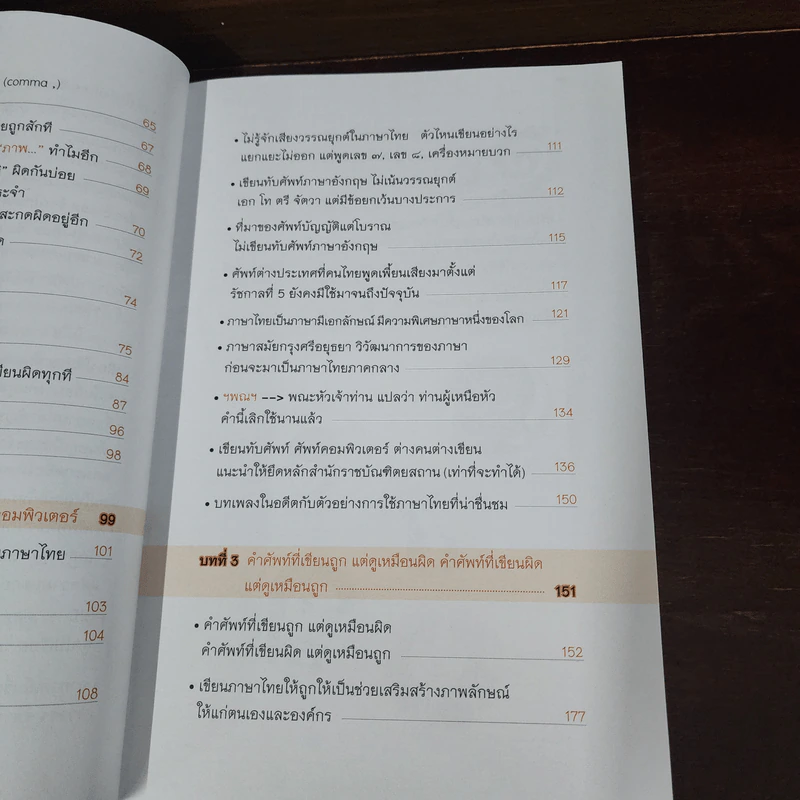 (comma ,)
65
ยถูกสักที 67
“ภาพ...” ทำไมอีก 68
” ผิดกันบ่อย 69
ระจำ
สะกดผิดอยู่อีก 70
72
74
75
ขียนผิดทุกที 84
87
96
98
อมพิวเตอร์ 99
นภาษาไทย 101
103
104
108
• ไม่รู้จักเสียงวรรณยุกต์ในภาษาไทย ตัวไหนเขียนอย่างไร
แยกแยะไม่ออก แต่พูดเลข ๗, เลข ๘, เครื่องหมายบวก 111
• เขียนทับศัพท์ภาษาอังกฤษ ไม่เน้นวรรณยุกต์
เอก โท ตรี จัตวา แต่มีข้อยกเว้นบางประการ 112
• ที่มาของศัพท์บัญญัติแต่โบราณ
ไม่เขียนทับศัพท์ภาษาอังกฤษ 115
• ศัพท์ต่างประเทศที่คนไทยพูดเพี้ยนเสียงมาตั้งแต่
รัชกาลที่ 5 ยังคงมีใช้มาจนถึงปัจจุบัน 117
• ภาษาไทยเป็นภาษามีเอกลักษณ์ มีความพิเศษภาษาหนึ่งของโลก 121
• ภาษาสมัยกรุงศรีอยุธยา วิวัฒนาการของภาษา
ก่อนจะมาเป็นภาษาไทยภาคกลาง 129
• ฯพณฯ --> พณะหัวเจ้าท่าน แปลว่า ท่านผู้เหนือหัว
คำนี้เลิกใช้นานแล้ว 134
• เขียนทับศัพท์ ศัพท์คอมพิวเตอร์ ต่างคนต่างเขียน
แนะนำให้ยึดหลักสำนักราชบัณฑิตยสถาน (เท่าที่จะทำได้) 136
• บทเพลงในอดีตกับตัวอย่างการใช้ภาษาไทยที่น่าชื่นชม 150
บทที่ 3 คำศัพท์ที่เขียนถูก แต่ดูเหมือนผิด คำศัพท์ที่เขียนผิด
แต่ดูเหมือนถูก 151
• คำศัพท์ที่เขียนถูก แต่ดูเหมือนผิด
คำศัพท์ที่เขียนผิด แต่ดูเหมือนถูก 152
• เขียนภาษาไทยให้ถูกให้เป็นช่วยเสริมสร้างภาพลักษณ์
ให้แก่ตนเองและองค์กร 177